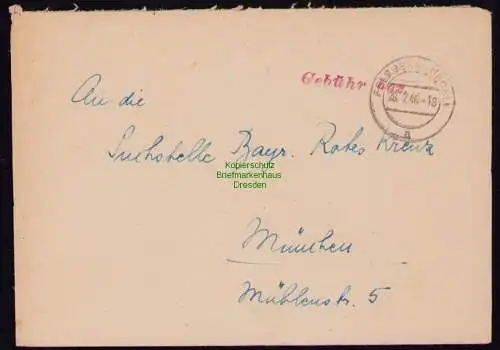 Gebühr bez.
26.2.46-18
a
An die
Suchstelle Bayr. Rotes Kreuz
Kopierschutz
Briefmarkenhaus
Dresden
München
Mühlenstr. 5